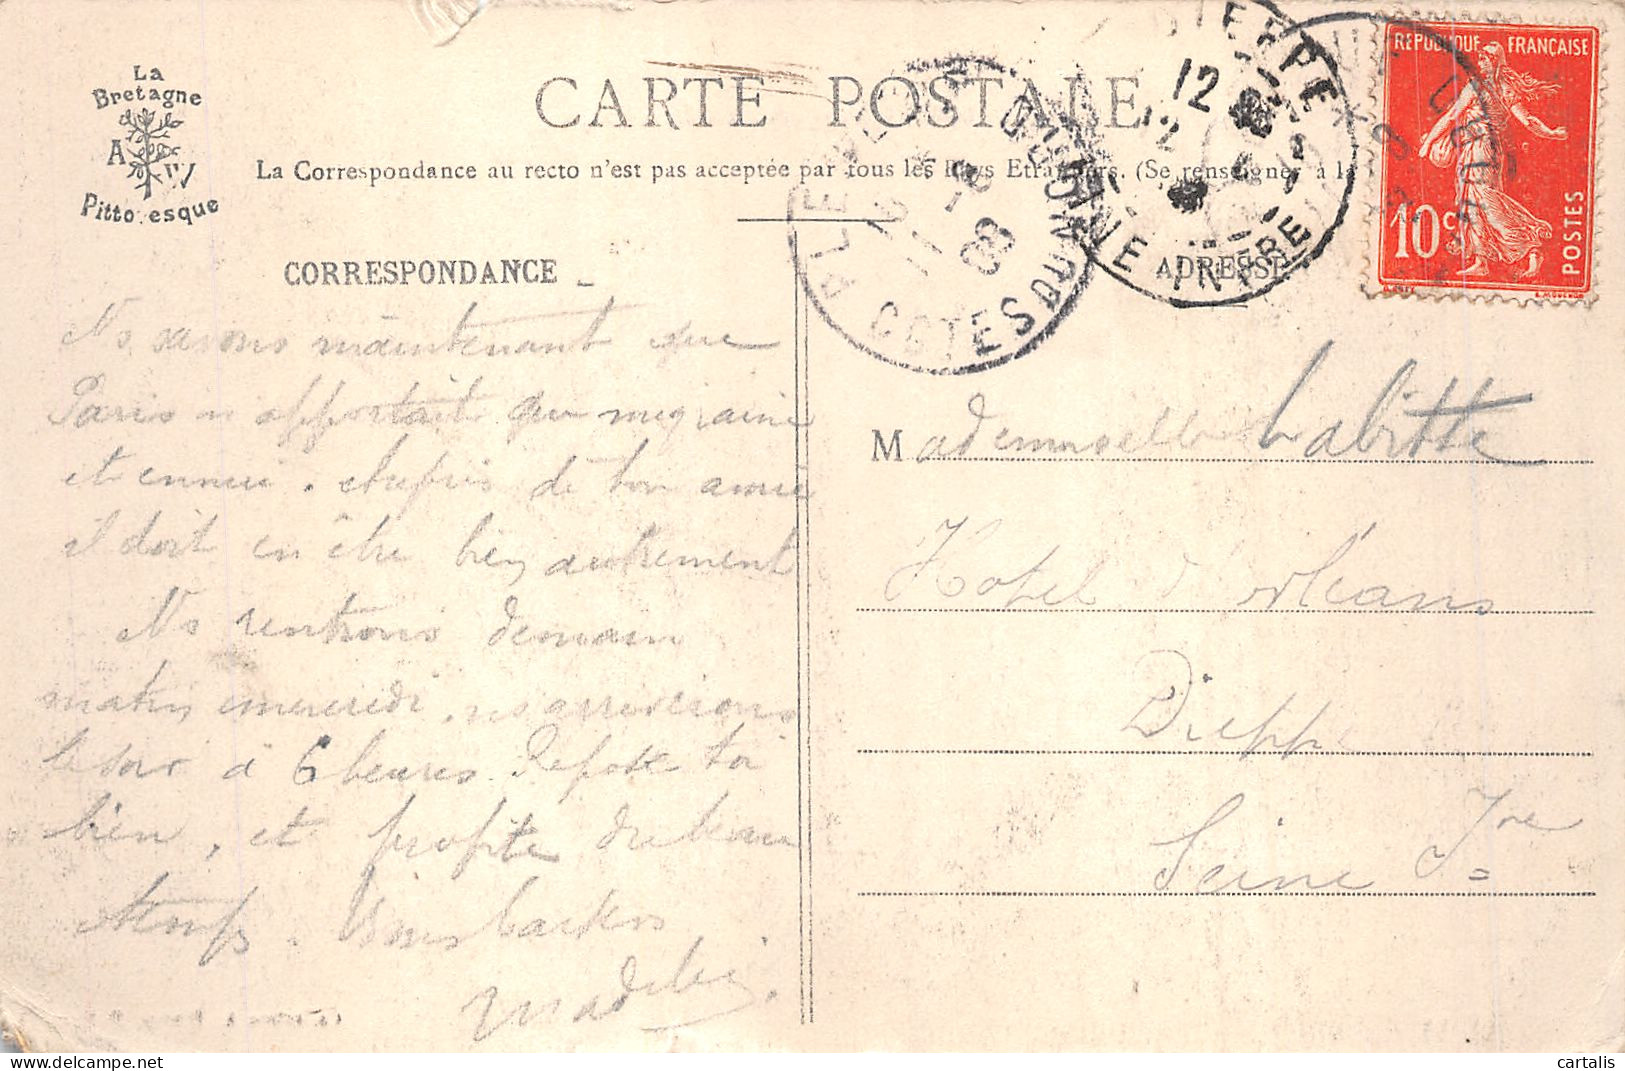 La
Bretagne
A W
Pittoresque
CARTE POSTALE
La Correspondance au recto n'est pas acceptée par tous les Pays Etrangers. (Se renseigner à la
CORRESPONDANCE
ADRESSE
REPUBLIQUE FRANÇAISE
10c
POSTES
12
DIEPPE
SEINE INFRE
COTES DU NORD
08
Ns savons maintenant que
Paris n apportait que migraine
et ennui. Auprès de ton amie
il doit en être bien autrement
Ns rentrons demain
matin mercredi. ns arriverons
le soir à 6 heures. Repose toi
bien, et profite du beau
temps. Bons baisers
Mademoiselle Labitte
Hotel d'Orléans
Dieppe
Seine Fre
cartalis